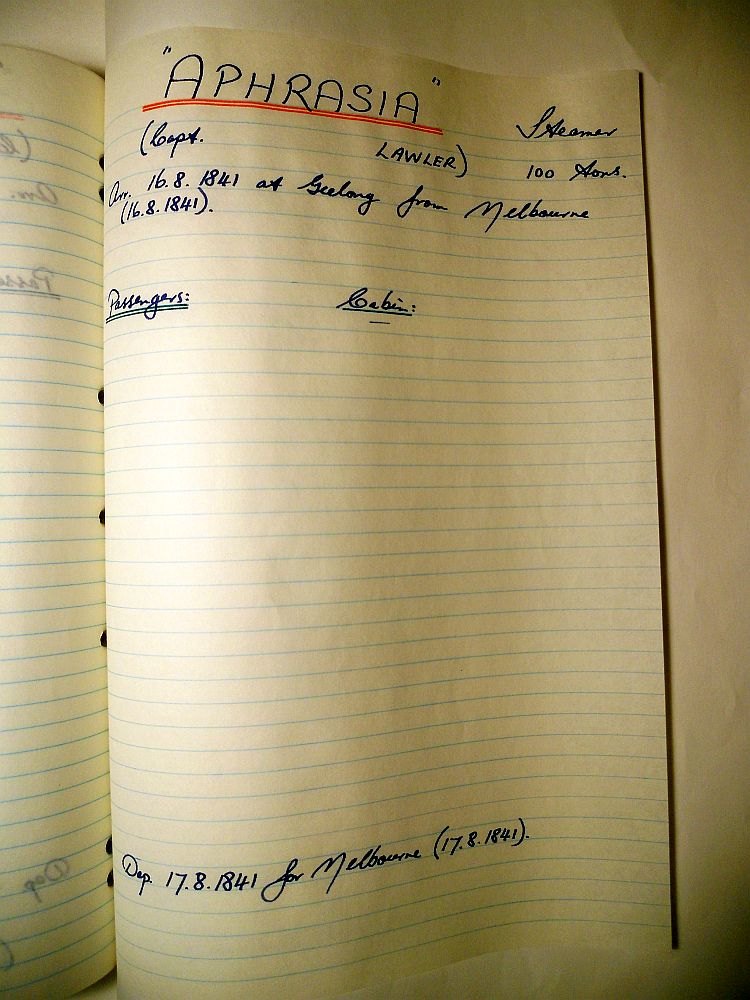 "APHRASIA"
Steamer
(Capt. LAWLER) 100 tons.
Arr. 16.8.1841 at Geelong from Melbourne
(16.8.1841).
Passengers: Cabin:
Dep. 17.8.1841 for Melbourne (17.8.1841).